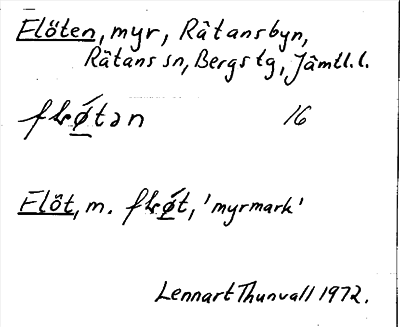 Flöten, myr, Rätansbyn,
Rätans sn, Bergs tg, Jämtl. l.
flǿ̲tən 16
Flöt, m. flǿ̲t, 'myrmark'
Lennart Thunvall 1972.